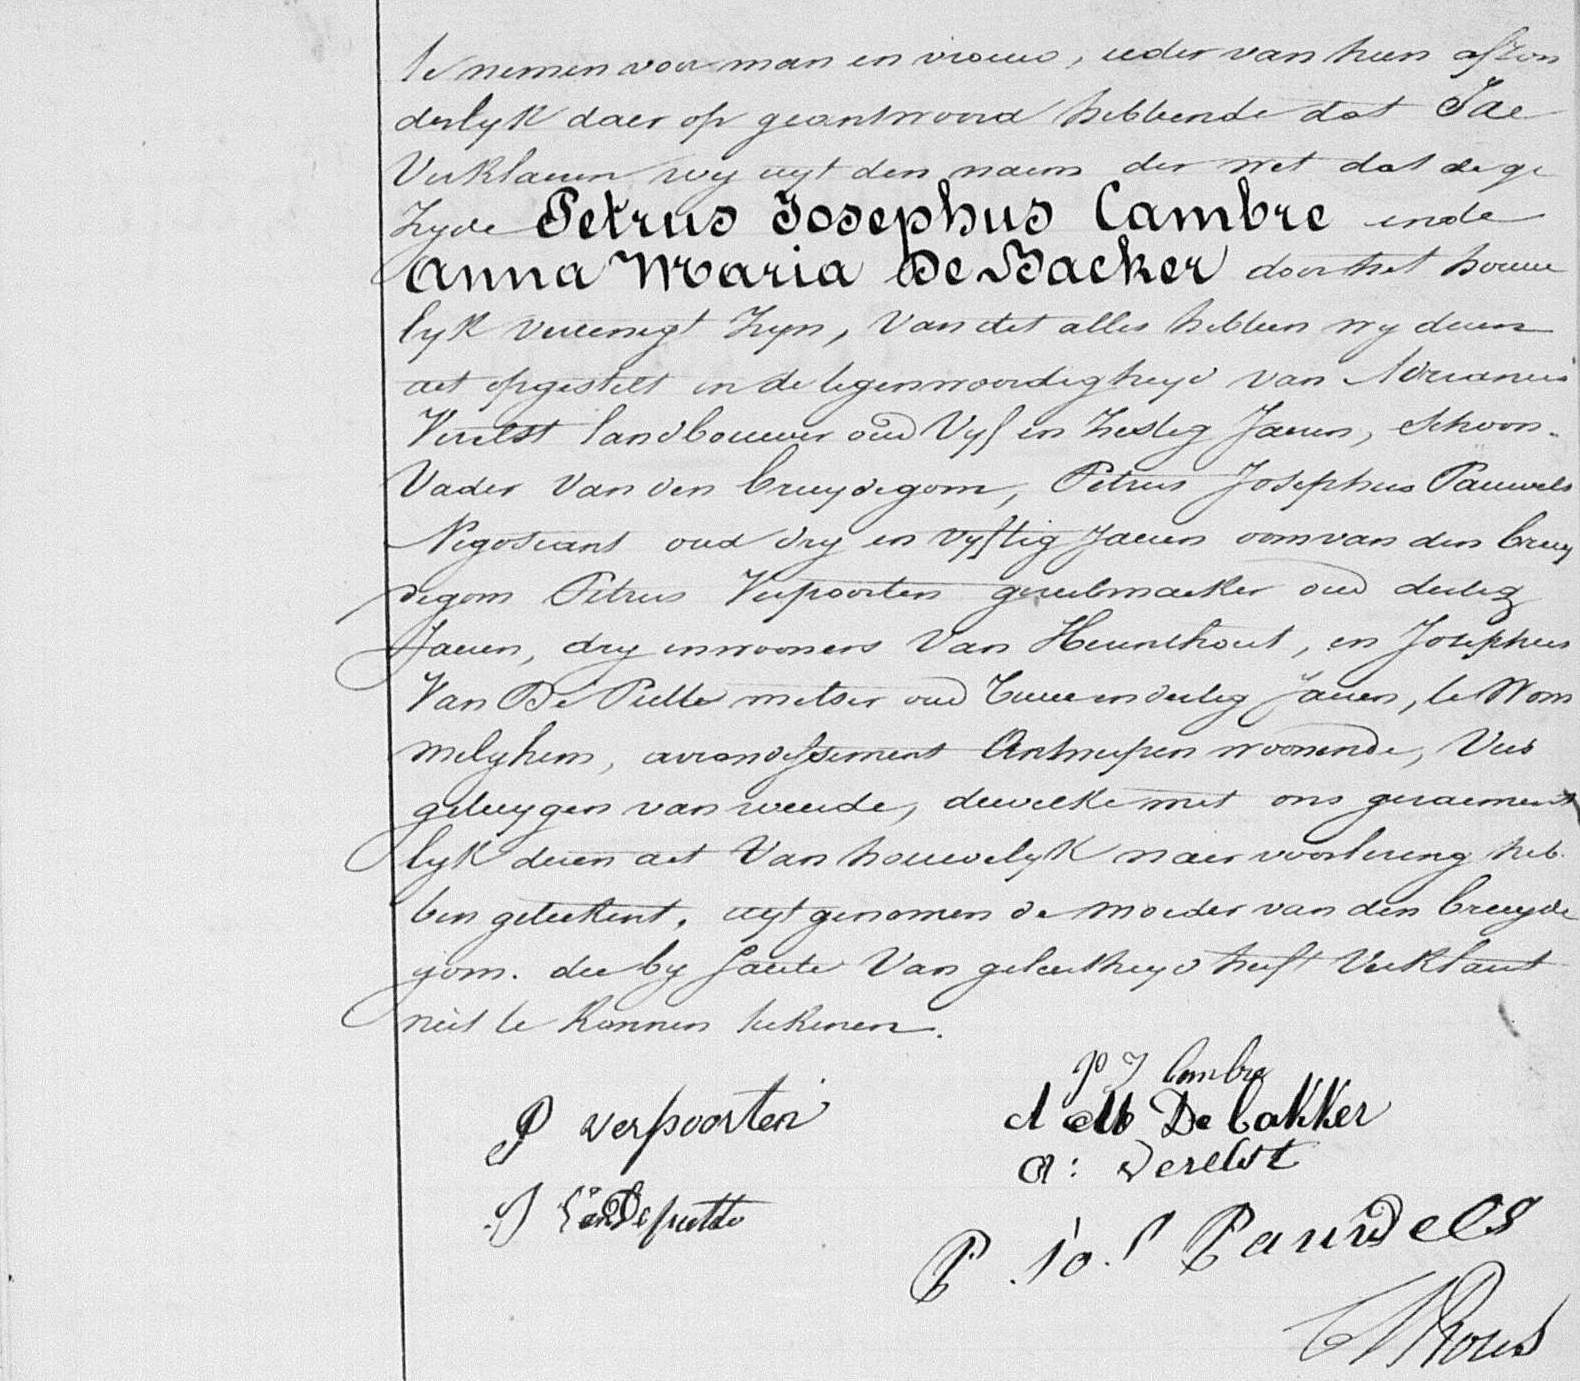 te nemen voor man en vrouw, ieder van hen afzon
derlyk daer op geantwoord hebbende dat Jae
Verklaeren wy uyt den naem der wet dat de ge
zeyde Petrus Josephus Cambre ende
Anna Maria De Backer door het houwe
lyk vereenigt zyn, Van dit alles hebben wy deezen
act opgestelt in de tegenwoordigheyd van Adrianus
Verelst landbouwer oud Vyf en Zestig Jaeren, Schoon-
Vader Van den bruydegom, Petrus Josephus Pauwels
Negotiant oud dry en vyftig Jaeren oom van den bruy
degom Petrus Verpoorten gareelmaeker oud dertig
Jaeren, dry inwooners Van Herenthout, en Josephus
Van De Putte metser oud twee en dertig Jaeren, te Wom
melghem, arrondissement Antwerpen woonende, Als
getuygen van weerde, dewelke met ons gezaement
lyk deezen act Van houwelyk naer voorlezing heb
ben geteekent, uytgenomen de moeder van den bruyde
gom. die by faute Van geleertheyd heeft Verklaert
niet te konnen teekenen.
P J Cambre
P verpoorten
A M De bakker
a: verelst
J VanDeputte
P. Jos Pauwels